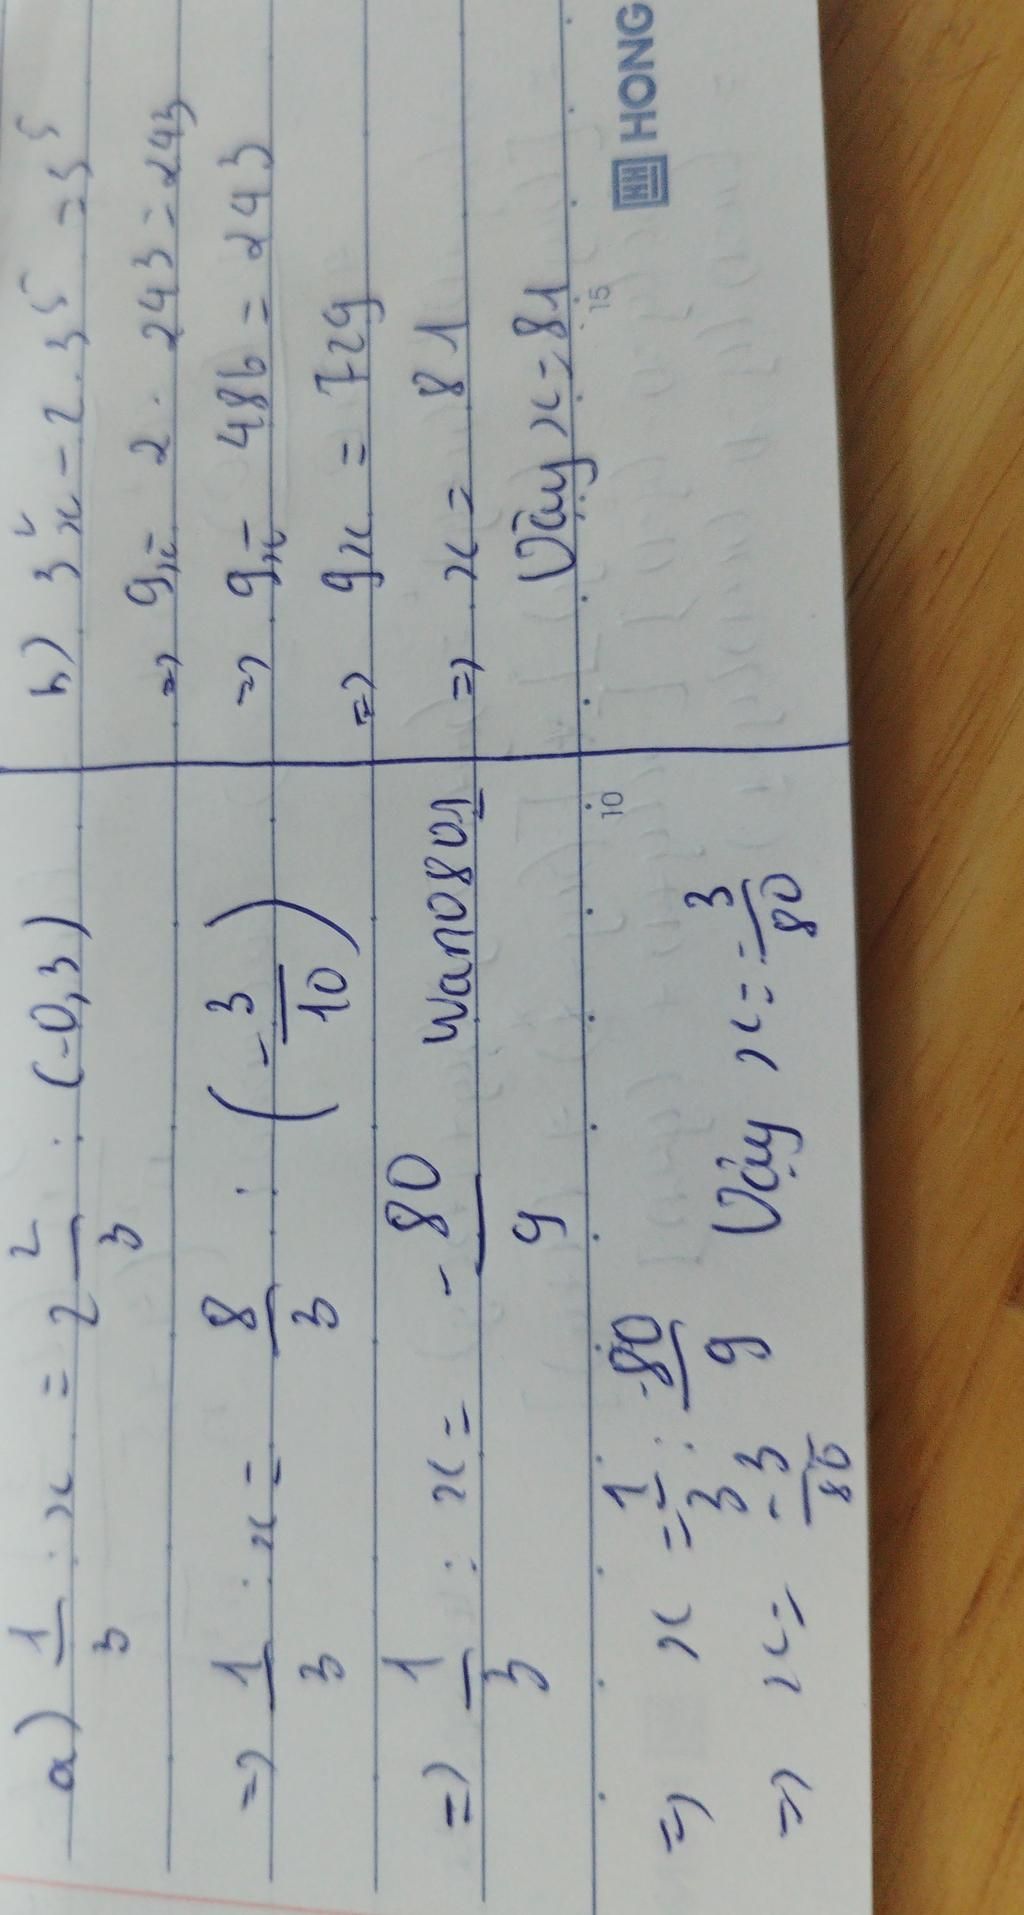 a) 1/3 : x = 2 2/3 : (-0,3)
=> 1/3 : x = 8/3 : (-3/10)
=> 1/3 : x = -80/9 wano801
=> x = 1/3 : -80/9
=> x = -3/80 Vậy x = -3/80
b) 3²x - 2.3⁵ = 3⁵
=> 9x - 2 . 243 = 243
=> 9x - 486 = 243
=> 9x = 729
=> x = 81
Vậy x = 81
10
15
HH HONG